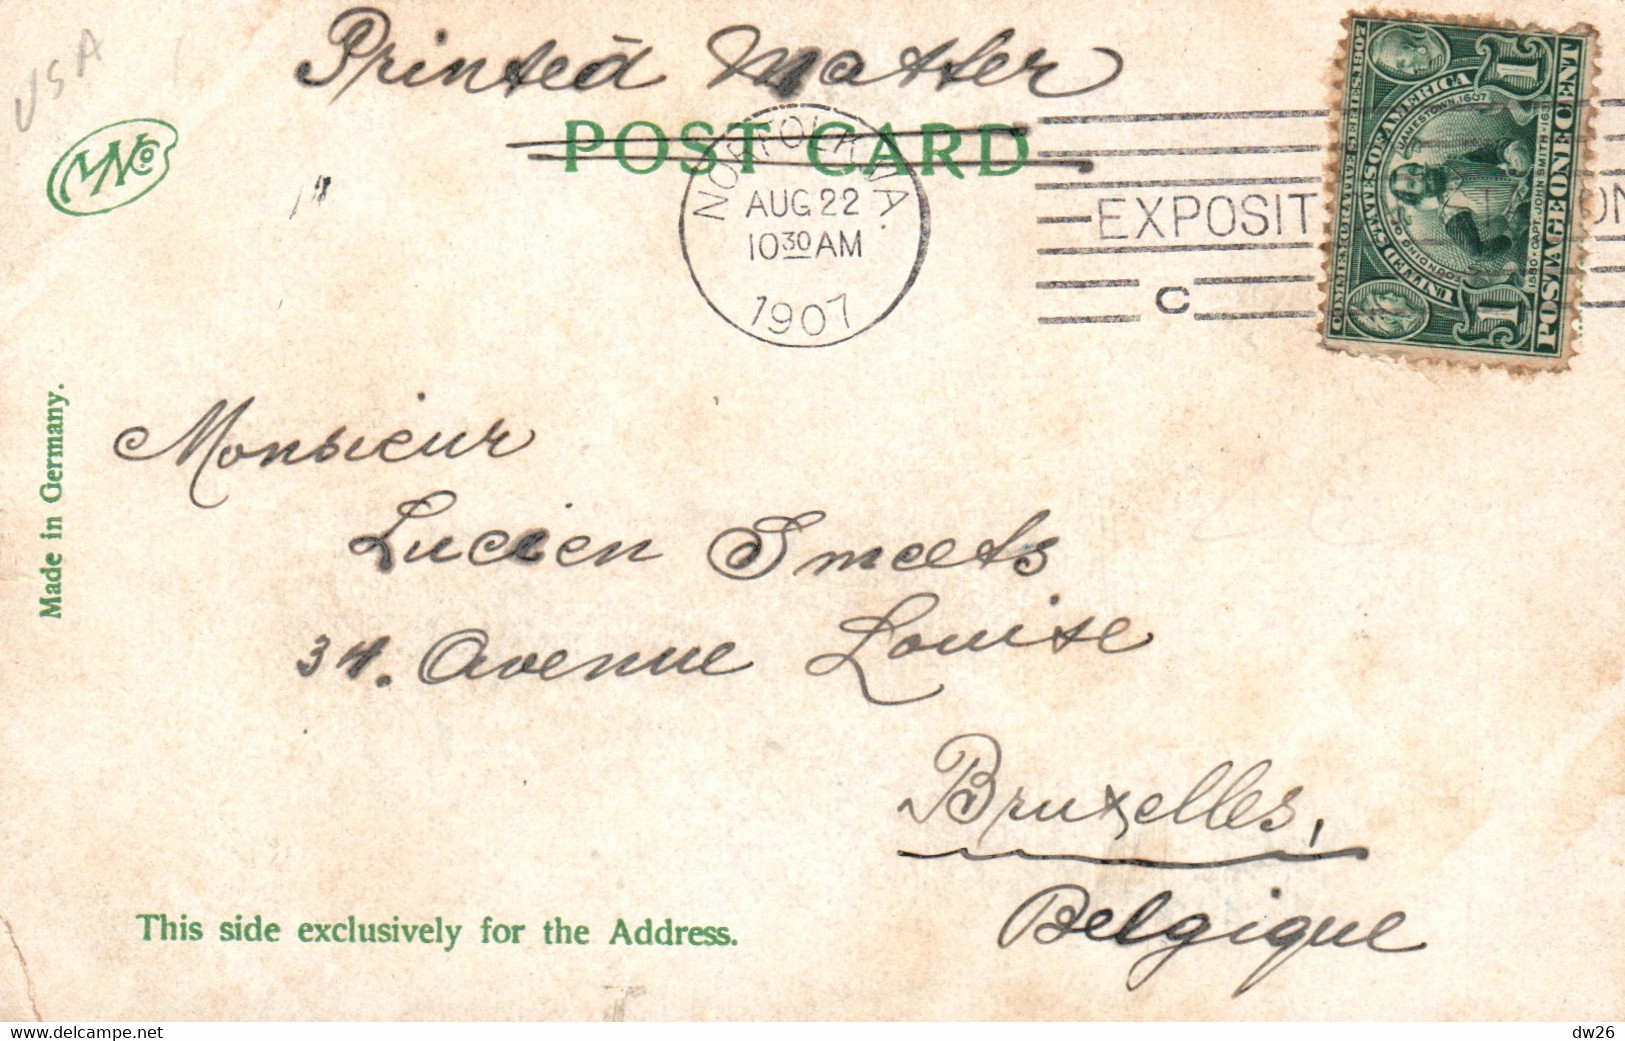 USA
Printed Matter
POST CARD
MNCo
NORFOLK VA.
AUG 22
10 30 AM
1907
EXPOSIT
ON
C
COMMEMORATIVE SERIES 1907
UNITED STATES OF AMERICA
FOUNDING OF JAMESTOWN, 1607
1580 · CAPT. JOHN SMITH · 1631
POSTAGE ONE CENT
1
1
Made in Germany.
Monsieur
Lucien Smeets
34. Avenue Louise
Bruxelles,
Belgique
This side exclusively for the Address.
www.delcampe.net
dw26